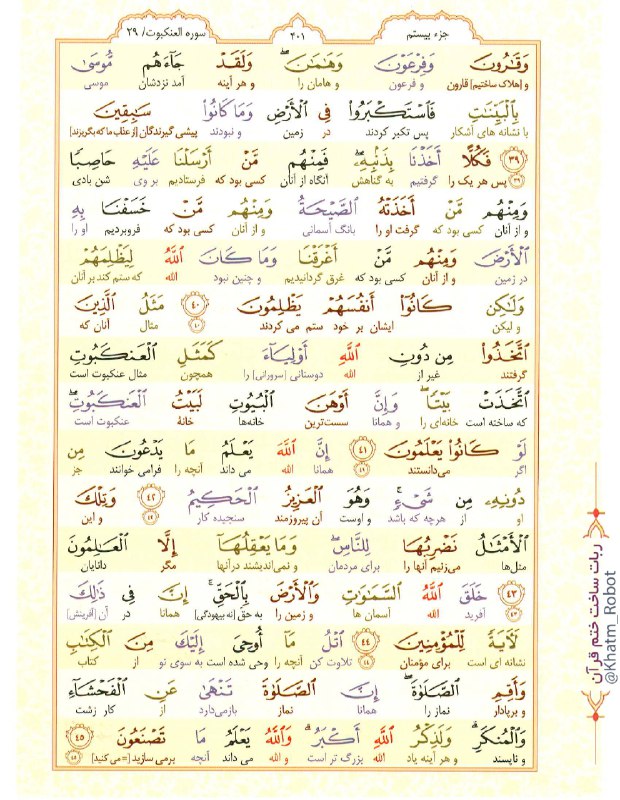 جزء بیستم
۴۰۱
سوره العنکبوت/ ۲۹
وَقَٰرُونَ وَفِرْعَوْنَ وَهَٰمَٰنَ ۖ وَلَقَدْ جَآءَهُم مُّوسَىٰ
و [هلاک ساختیم] قارون و فرعون و هامان را و هر آینه آمد نزدشان موسی
بِٱلْبَيِّنَٰتِ فَٱسْتَكْبَرُوا۟ فِى ٱلْأَرْضِ وَمَا كَانُوا۟ سَٰبِقِينَ
با نشانه های آشکار پس تکبر کردند در زمین و نبودند پیشی گیرندگان [از عذاب ما که بگریزند]
﴿٣٩﴾ فَكُلًّا أَخَذْنَا بِذَنۢبِهِۦ ۖ فَمِنْهُم مَّنْ أَرْسَلْنَا عَلَيْهِ حَاصِبًا
۳۹ پس هر یک را گرفتیم به گناهش آنگاه از آنان کسی بود که فرستادیم بر وی شن بادی
وَمِنْهُم مَّنْ أَخَذَتْهُ ٱلصَّيْحَةُ وَمِنْهُم مَّنْ خَسَفْنَا بِهِ
و از آنان کسی بود که گرفت او را بانگ آسمانی و از آنان کسی بود که فروبردیم او را
ٱلْأَرْضَ وَمِنْهُم مَّنْ أَغْرَقْنَا وَمَا كَانَ ٱللَّهُ لِيَظْلِمَهُمْ
در زمین و از آنان کسی بود که غرق گردانیدیم و چنین نبود الله که ستم کند بر آنان
وَلَٰكِن كَانُوٓا۟ أَنفُسَهُمْ يَظْلِمُونَ ﴿٤٠﴾ مَثَلُ ٱلَّذِينَ
و لیکن ایشان بر خود ستم می کردند ۴۰ مثال آنان که
ٱتَّخَذُوا۟ مِن دُونِ ٱللَّهِ أَوْلِيَآءَ كَمَثَلِ ٱلْعَنكَبُوتِ
گرفتند غیر از الله دوستانی [سرورانی] را همچون مثال عنکبوت است
ٱتَّخَذَتْ بَيْتًا ۖ وَإِنَّ أَوْهَنَ ٱلْبُيُوتِ لَبَيْتُ ٱلْعَنكَبُوتِ ۖ
که ساخته است خانه‌ای را و همانا سست‌ترین خانه‌ها خانهٔ عنکبوت است
لَوْ كَانُوا۟ يَعْلَمُونَ ﴿٤١﴾ إِنَّ ٱللَّهَ يَعْلَمُ مَا يَدْعُونَ مِن
اگر می‌دانستند ۴۱ همانا الله می داند آنچه را فرامی خوانند جز
دُونِهِۦ مِن شَىْءٍ ۚ وَهُوَ ٱلْعَزِيزُ ٱلْحَكِيمُ ﴿٤٢﴾ وَتِلْكَ
او از هرچه که باشد و اوست آن پیروزمند سنجیده کار ۴۲ و این
ٱلْأَمْثَٰلُ نَضْرِبُهَا لِلنَّاسِ ۖ وَمَا يَعْقِلُهَآ إِلَّا ٱلْعَٰلِمُونَ
مثل‌ها می‌زنیم آنها را برای مردمان و نمی‌اندیشند در‌آنها مگر دانایان
﴿٤٣﴾ خَلَقَ ٱللَّهُ ٱلسَّمَٰوَٰتِ وَٱلْأَرْضَ بِٱلْحَقِّ ۚ إِنَّ فِى ذَٰلِكَ
۴۳ آفرید الله آسمان ها و زمین را به حق [نه بیهودگی] همانا در آن [آفرینش]
لَءَايَةً لِّلْمُؤْمِنِينَ ﴿٤٤﴾ ٱتْلُ مَآ أُوحِىَ إِلَيْكَ مِنَ ٱلْكِتَٰبِ
نشانه ای است برای مؤمنان ۴۴ تلاوت کن آنچه را وحی شده است به سوی تو از کتاب
وَأَقِمِ ٱلصَّلَوٰةَ ۖ إِنَّ ٱلصَّلَوٰةَ تَنْهَىٰ عَنِ ٱلْفَحْشَآءِ
و برپادار نماز را همانا نماز بازمی‌دارد از کار زشت
وَٱلْمُنكَرِ ۗ وَلَذِكْرُ ٱللَّهِ أَكْبَرُ ۗ وَٱللَّهُ يَعْلَمُ مَا تَصْنَعُونَ ﴿٤٥﴾
و ناپسند و هر آینه یاد الله بزرگ تر است و الله می داند آنچه برمی سازید [= می کنید] ۴۵
ربات ساخت ختم قرآن
@Khatm_Robot